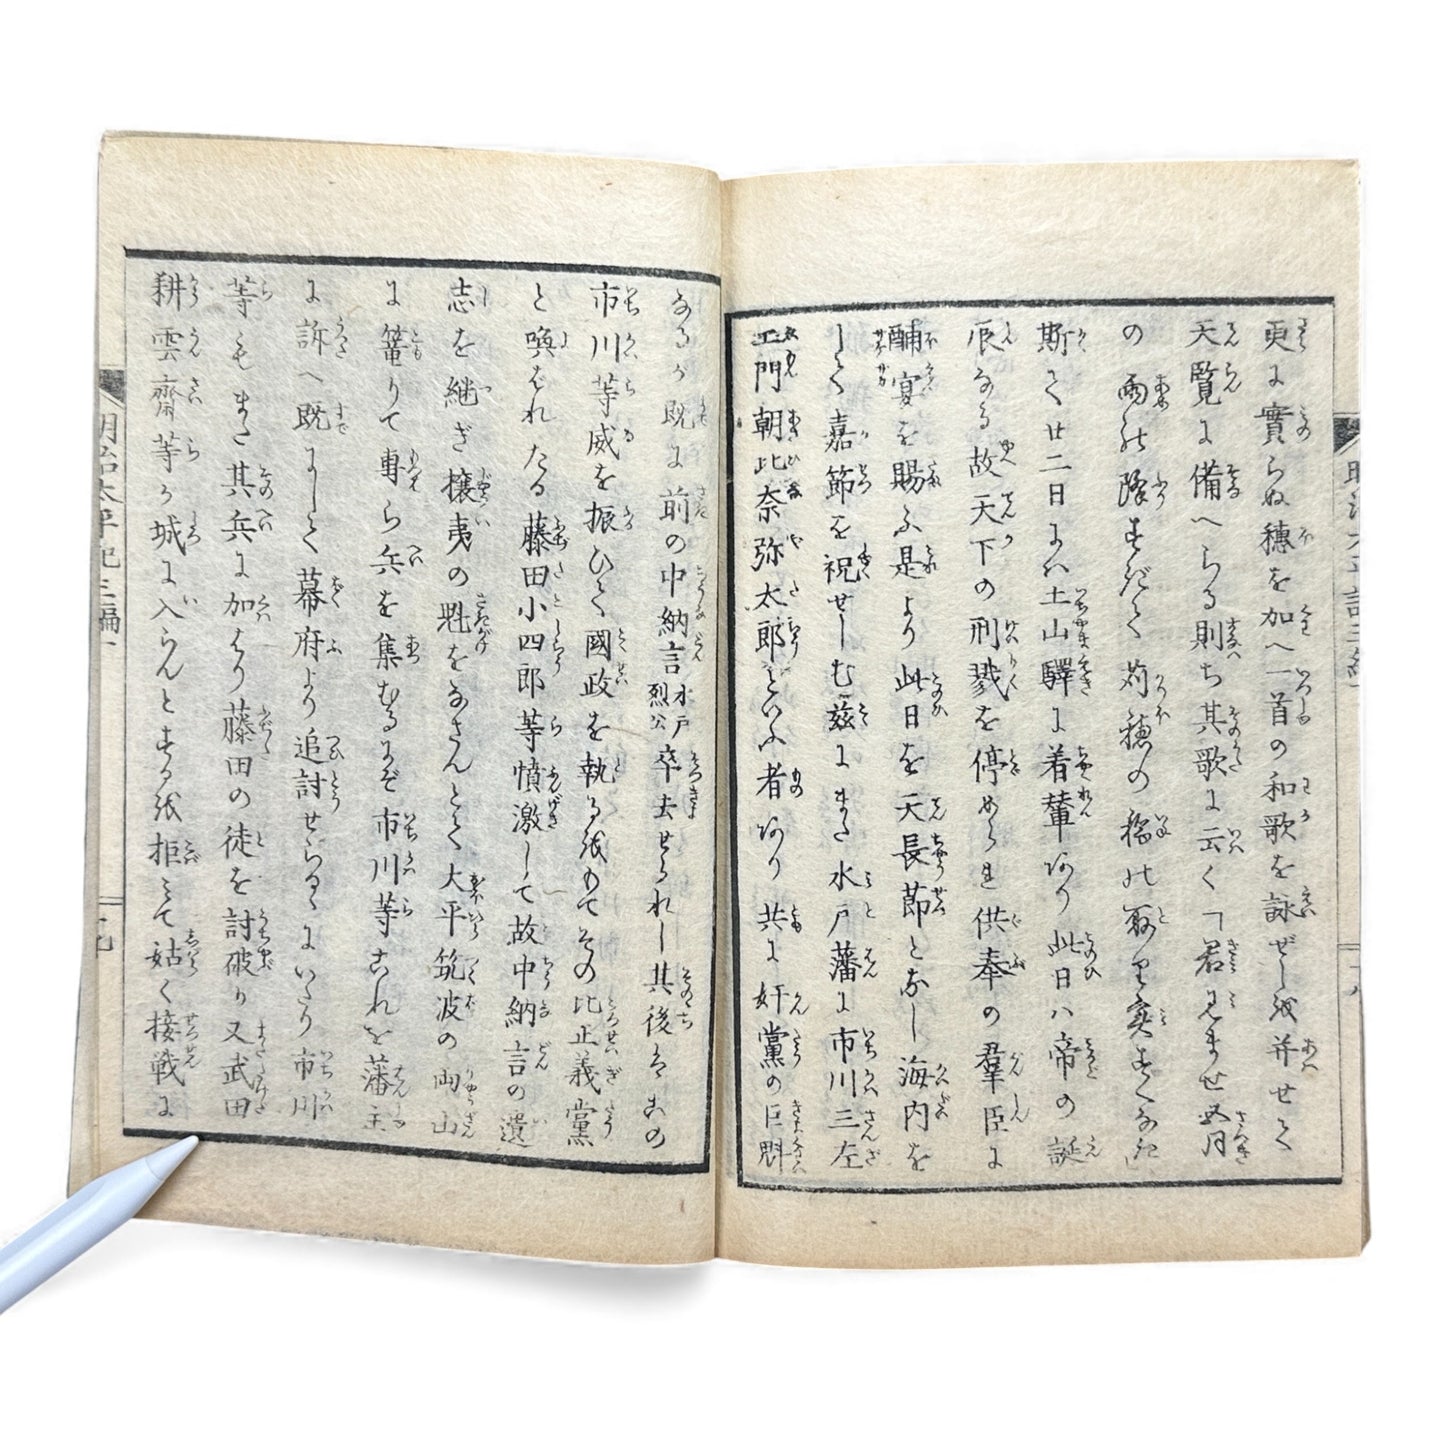 更に實らぬ穗を加へ一首の和歌を詠ぜしを并せて
天覧に備へらる則ち其歌に云く「君も見ませ五月
の雨の降すぎて苅穗の稲の取り実すくなき」
斯て廿二日にハ土山驛に着輦あり此日ハ帝の誕
辰なる故天下の刑戮を停められ供奉の羣臣に
酺宴を賜ふ是より此日を天長節となし海内を
して嘉節を祝せしむ茲にまた水戸藩に市川三左
エ門朝比奈弥太郎といふ者あり共に奸黨の巨魁
なるが既に前の中納言水戸烈公卒去せられし其後はこの
市川等威を振ひて國政を執るをもてその比正義黨
と喚ばれたる藤田小四郎等憤激して故中納言の遺
志を継ぎ攘夷の魁をなさんとて大平筑波の両山
に篭りて専ら兵を集むるにぞ市川等これを藩主
に訴へ既にして幕府より追討せらるゝにいたり市川
等もまた其兵に加はり藤田の徒を討破り又武田
耕雲齋等が城に入らんとするを拒ミて姑く接戦に
明治太平記三編一
十九